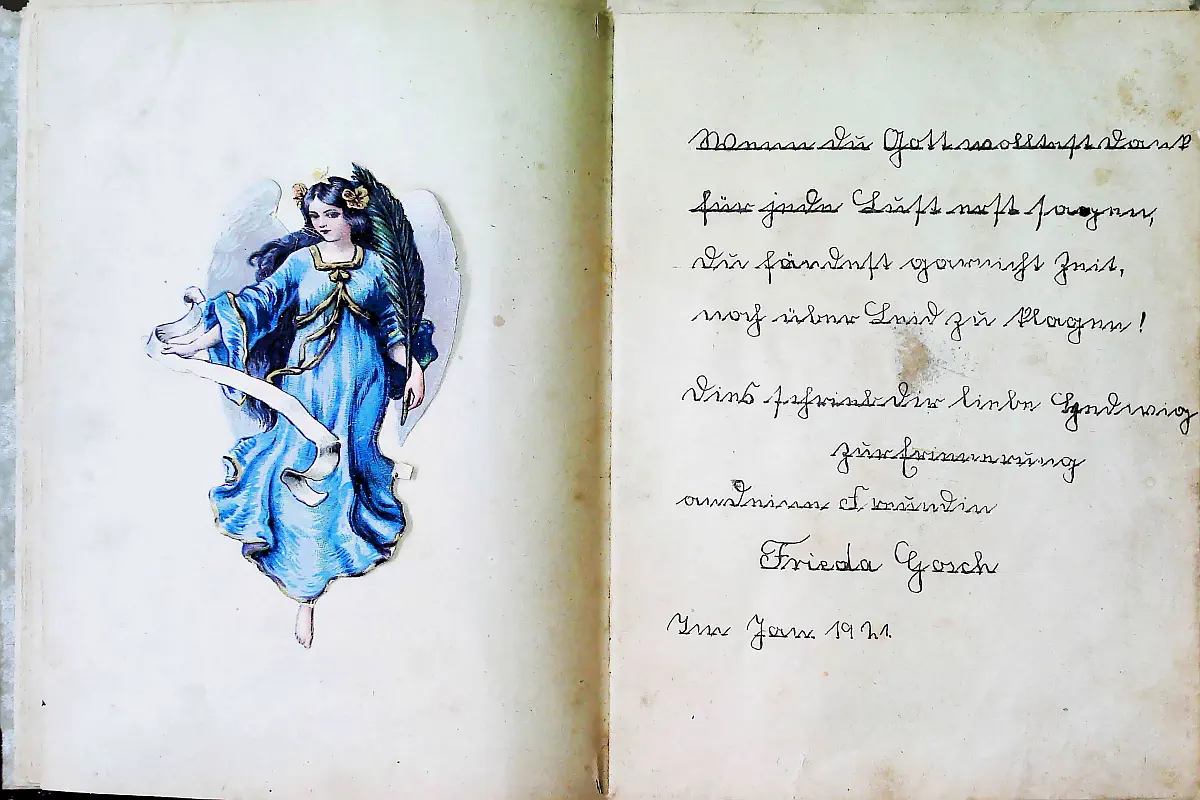 Wenn du Gott wolltest Dank
für jede Lust erst sagen,
Du fändest garnicht Zeit,
noch über Leid zu klagen!
Dies schrieb Dir liebe Hedwig
zur Erinnerung
an Deine Freundin
Frieda Gosch
Im Jan 1921.